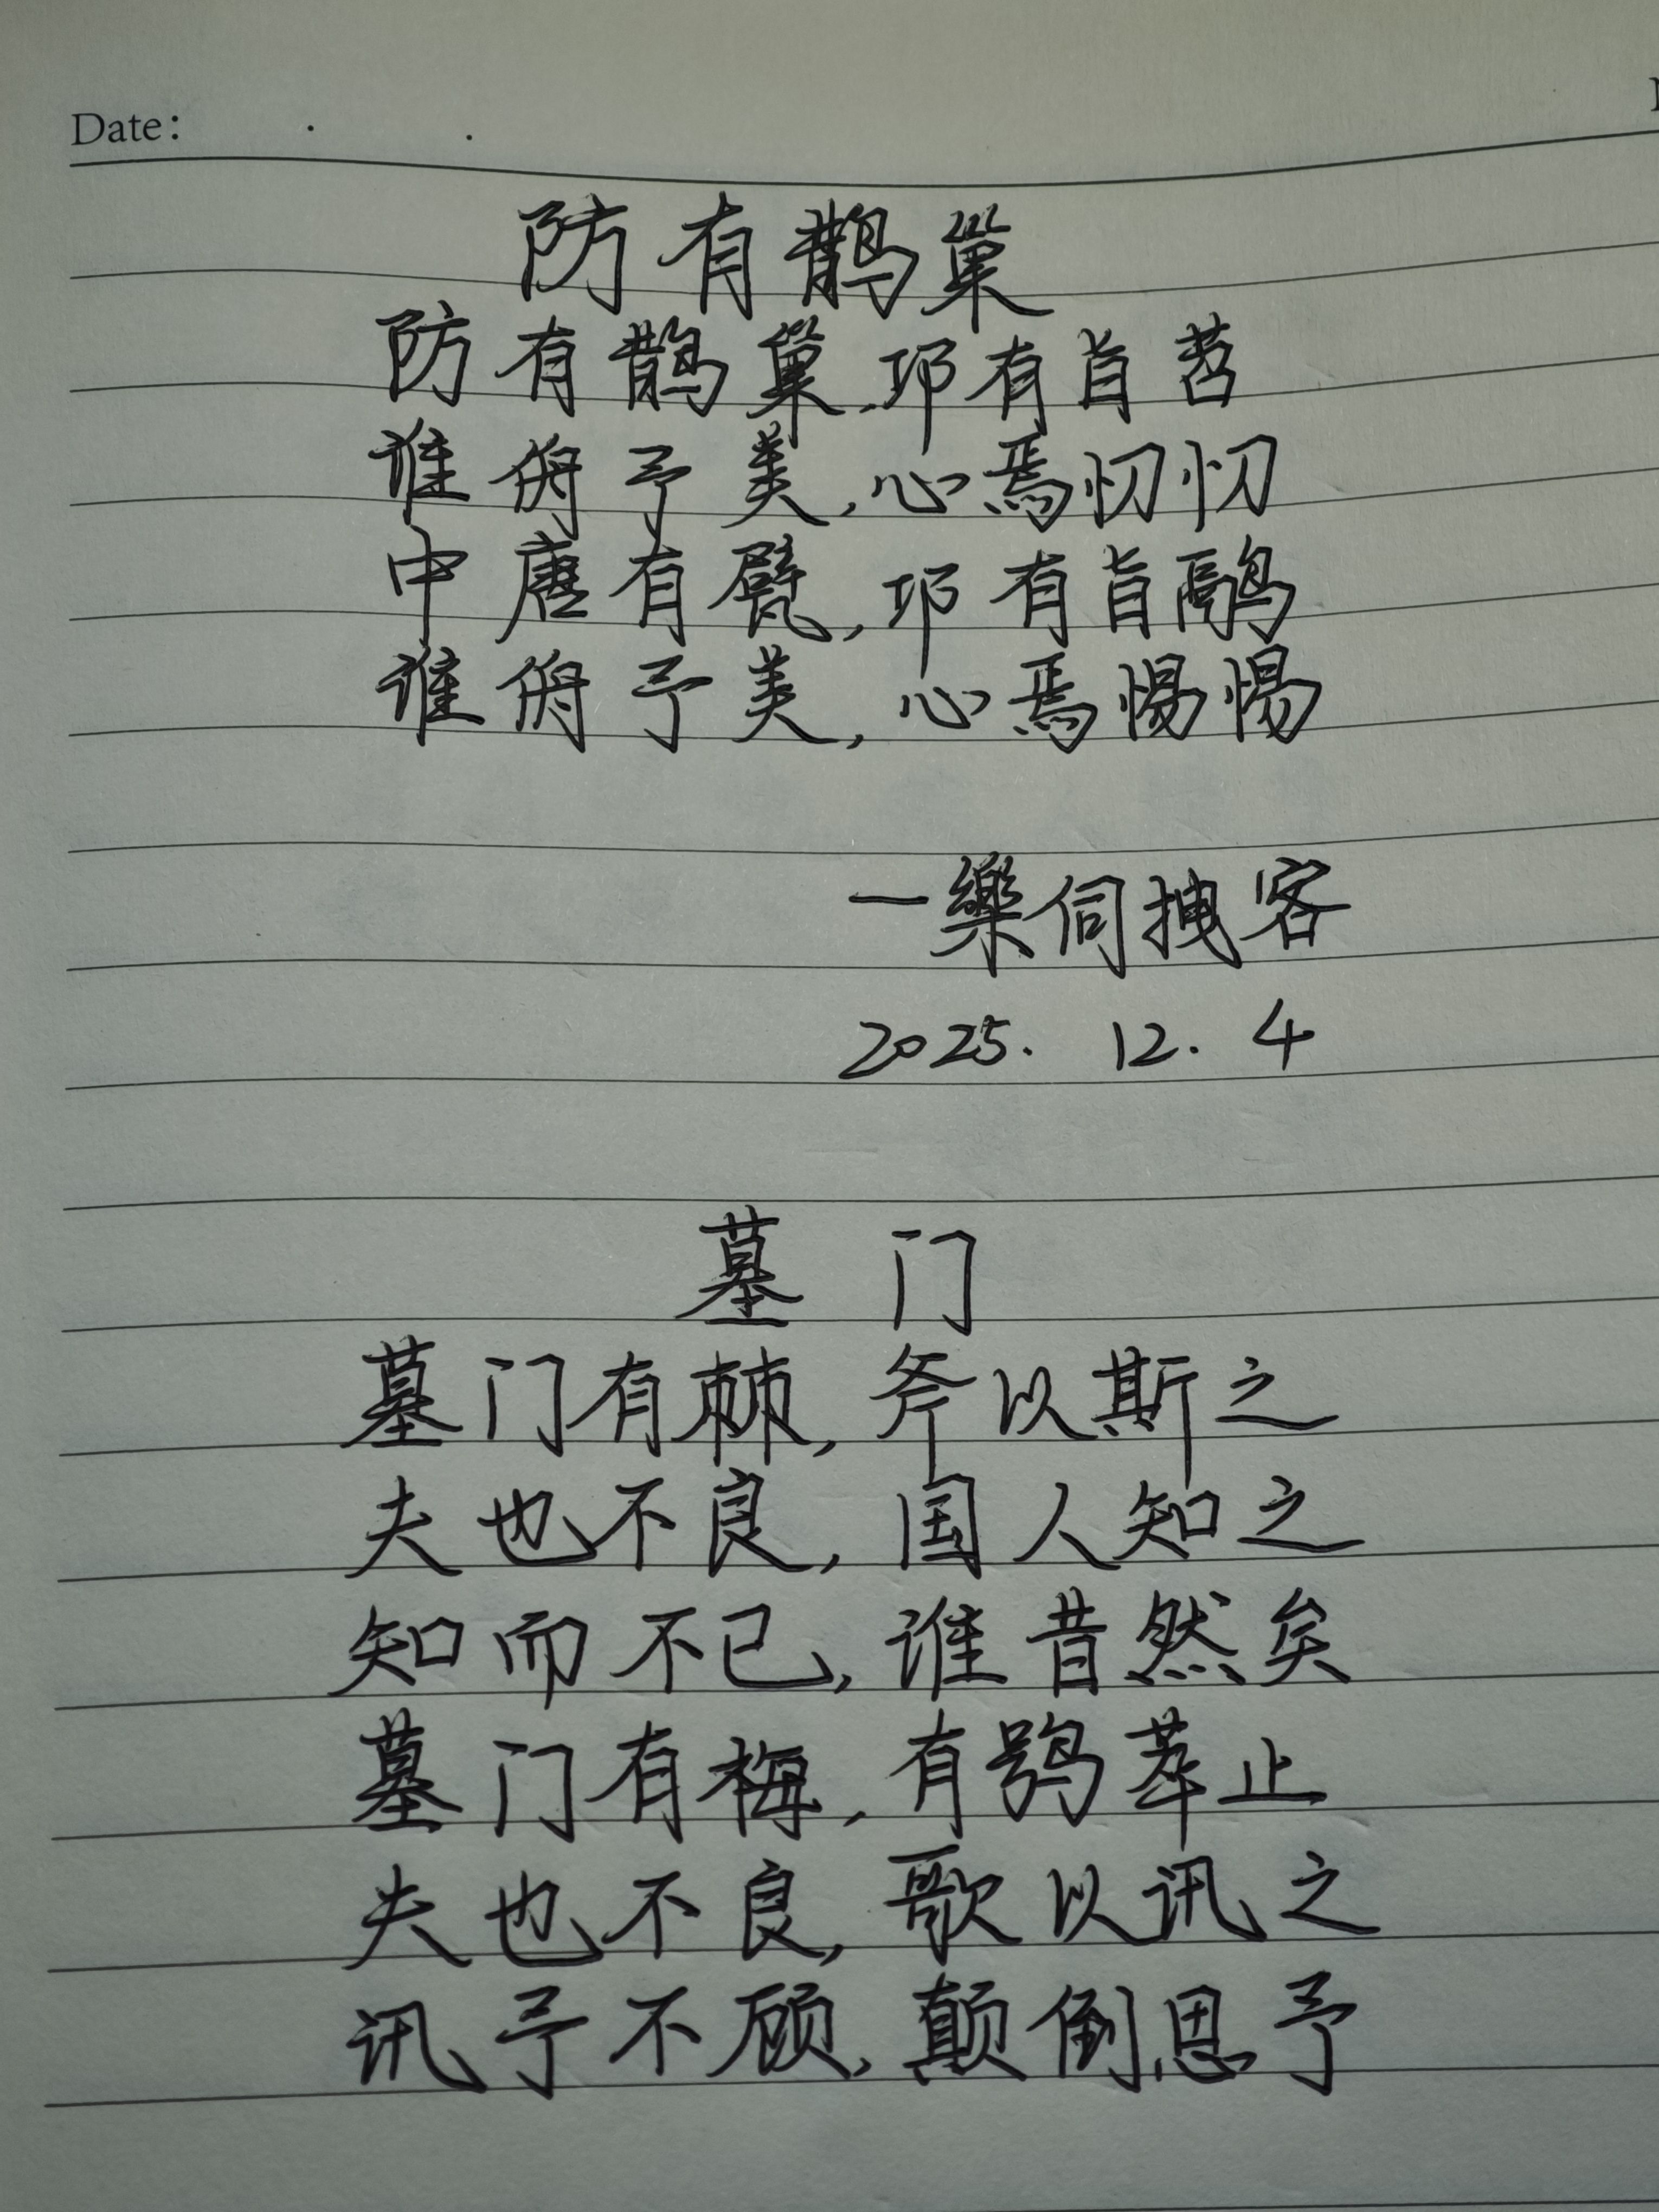 Date:
防有鹊巢
防有鹊巢,邛有旨苕
谁侜予美,心焉忉忉
中唐有甓,邛有旨鹝
谁侜予美,心焉惕惕
一樂伺拽客
2025. 12. 4
墓门
墓门有棘,斧以斯之
夫也不良,国人知之
知而不已,谁昔然矣
墓门有梅,有鸮萃止
夫也不良,歌以讯之
讯予不顾,颠倒思予